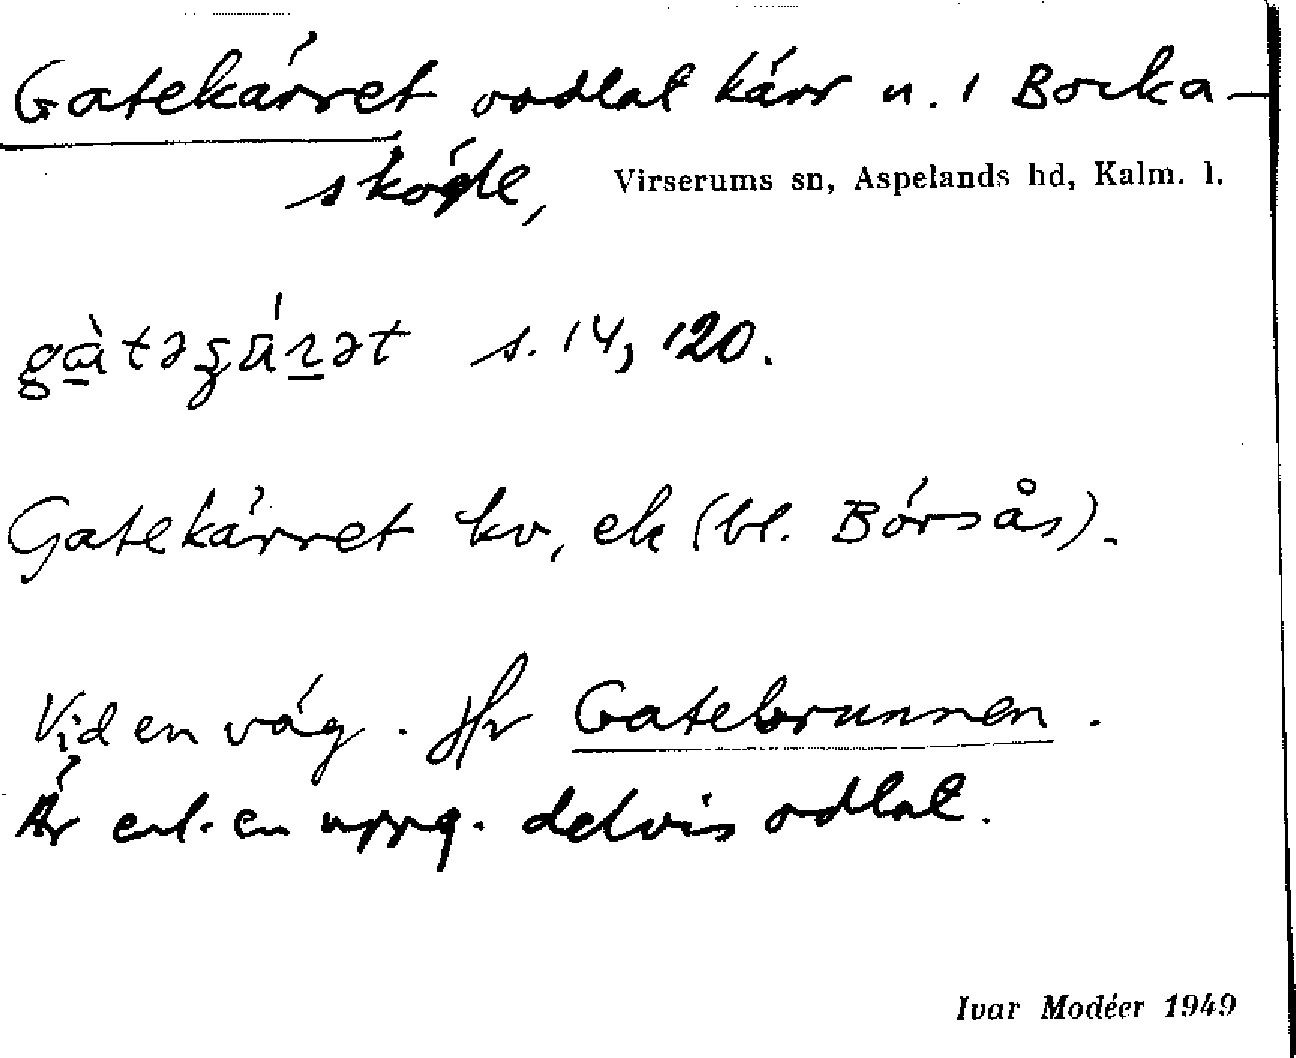 Gatekärret oodlat kärr n. i Bocka-
sköge, Virserums sn, Aspelands hd, Kalm. l.
s. 14, 120.
Gatekärret kv, ek (bl. Börsås).
Vid en väg. Jfr Gatebrunnen.
Är enl. en uppg. delvis odlat.
Ivar Modéer 1949